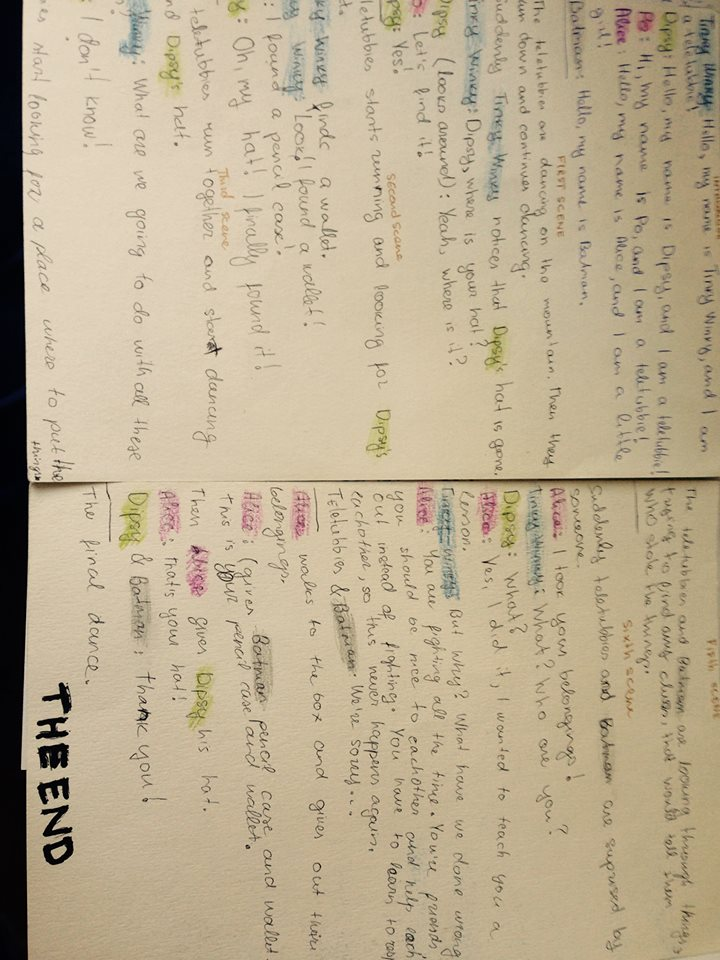 Tinky Winky: Hello, my name is Tinky Winky, and I am
a teletubbie!
Dipsy: Hello, my name is Dipsy, and I am a teletubbie!
Po: Hi, my name is Po, and I am a teletubbie!
Alice: Hello, my name is Alice, and I am a little
girl!
Batman: Hello, my name is Batman.
FIRST SCENE
The teletubbies are dancing on the mountain. Then they
run down and continue dancing.
Suddenly Tinky Winky notices that Dipsy's hat is gone.
Tinky Winky: Dipsy, where is your hat?
Dipsy (looks around): Yeah, where is it?
Po: Let's find it!
Dipsy: Yes!
second scene
teletubbies starts running and looking for Dipsy's
Tinky Winky finds a wallet.
Winky: Look! I found a wallet!
: I found a pencil case!
Dipsy: Oh, my hat! I finally found it!
Third scene
teletubbies run together and start dancing
and Dipsy's hat.
Winky: What are we going to do with all these
: I don't know!
start looking for a place where to put the
things
Fifth scene
The teletubbies and Batman are looking through things,
trying to find any clues, that would tell them
who stole the things.
Sixth scene
Suddenly teletubbies and Batman are suprised by
someone.
Alice: I took your belongings!
Tinky Winky: What? Who are you?
Dipsy: What?
Alice: Yes, I did it, I wanted to teach you a
lesson.
Tinky-Winky: But why? What have we done wrong
Alice: You are fighting all the time. You're friends
you should be nice to eachother and help each
out instead of fighting. You have to learn to
eachother, so this never happens again.
Teletubbies & Batman: We're sorry...
Alice walks to the box and gives out their
belongings.
Alice: (gives Batman pencil case and wallet
this is your pencil case and wallet.
Then Alice gives Dipsy his hat.
Alice: That's your hat!
Dipsy & Batman: Thank you!
The final dance.
THE END